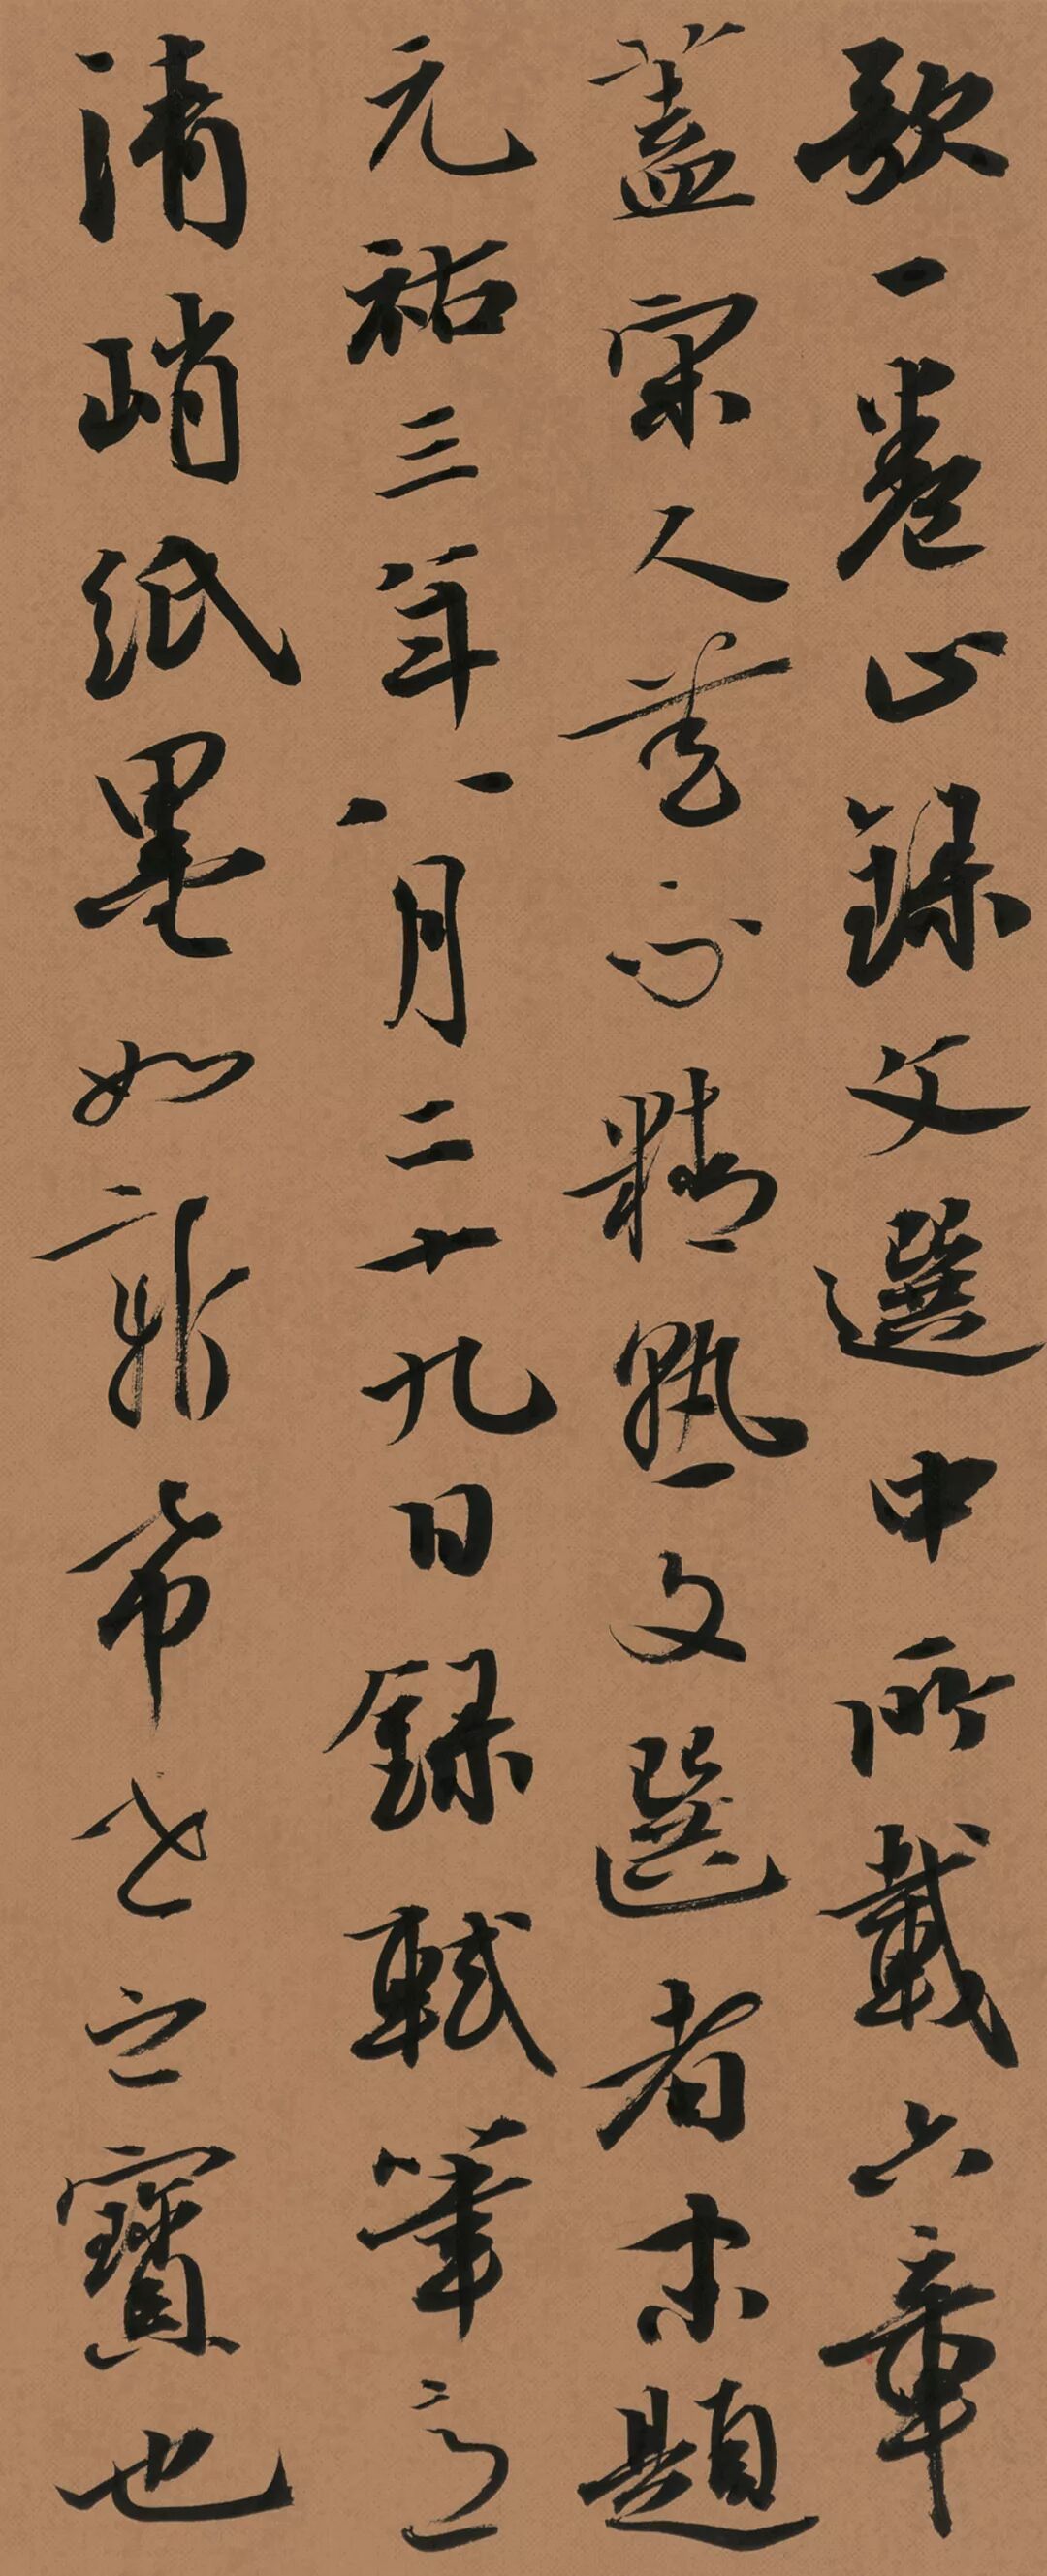 歌一卷止録文選中所載六章
蓋宋人無不精熟文選者末題
元祐三年八月二十九日録軾筆意
清峭紙墨如新希世之寶也